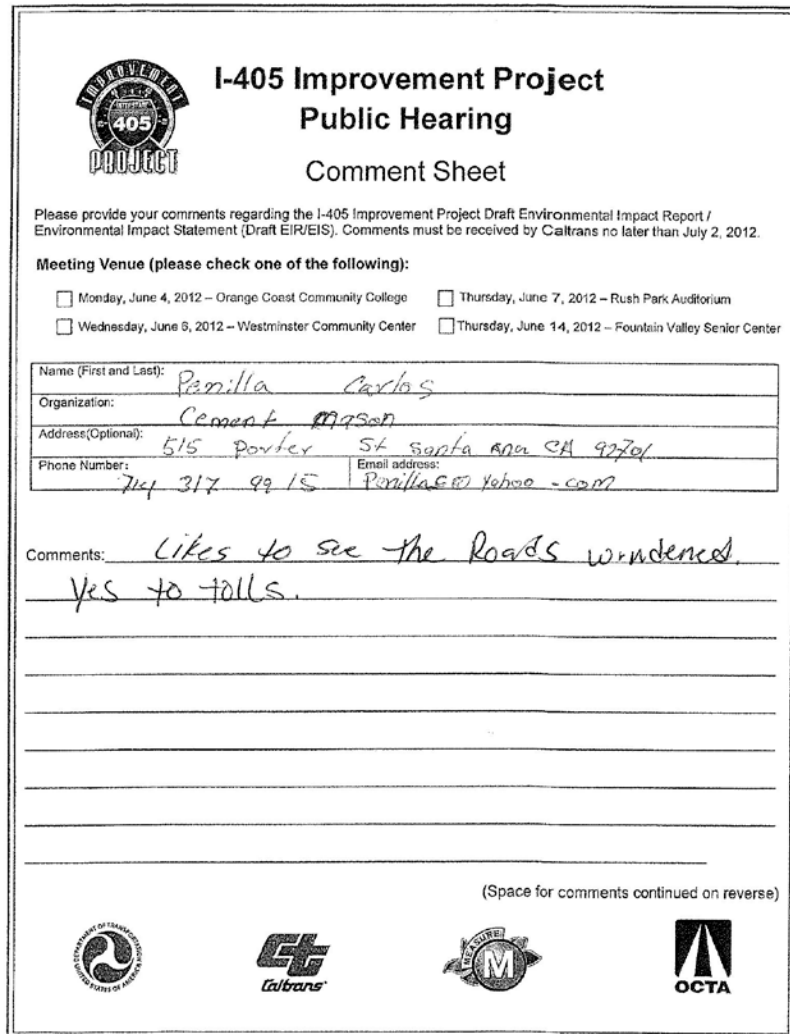 IMPROVEMENT
INTERSTATE
405
PROJECT
I-405 Improvement Project
Public Hearing
Comment Sheet
Please provide your comments regarding the I-405 Improvement Project Draft Environmental Impact Report /
Environmental Impact Statement (Draft EIR/EIS). Comments must be received by Caltrans no later than July 2, 2012.
Meeting Venue (please check one of the following):
Monday, June 4, 2012 – Orange Coast Community College
Thursday, June 7, 2012 – Rush Park Auditorium
Wednesday, June 6, 2012 – Westminster Community Center
Thursday, June 14, 2012 – Fountain Valley Senior Center
Name (First and Last): Penilla Carlos
Organization: Cement mason
Address(Optional): 515 Porter St Santa Ana CA 92701
Phone Number: 714 317 9915
Email address: PenillaC@Yahoo.com
Comments: Likes to see the Roads windened.
Yes to tolls.
(Space for comments continued on reverse)
DEPARTMENT OF TRANSPORTATION
UNITED STATES OF AMERICA
Caltrans
MEASURE
M
OCTA